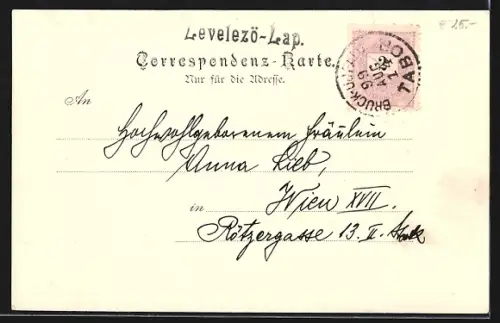 € 25.-
Levelező-Lap.
Correspondenz-Karte.
Nur für die Adresse.
BRUCK-U
TABOR
AUG
99
An
Hochwohlgeborenem Fräulein
Anna Lieb,
in Wien XVII.
Rötzergasse 13. II. Stock